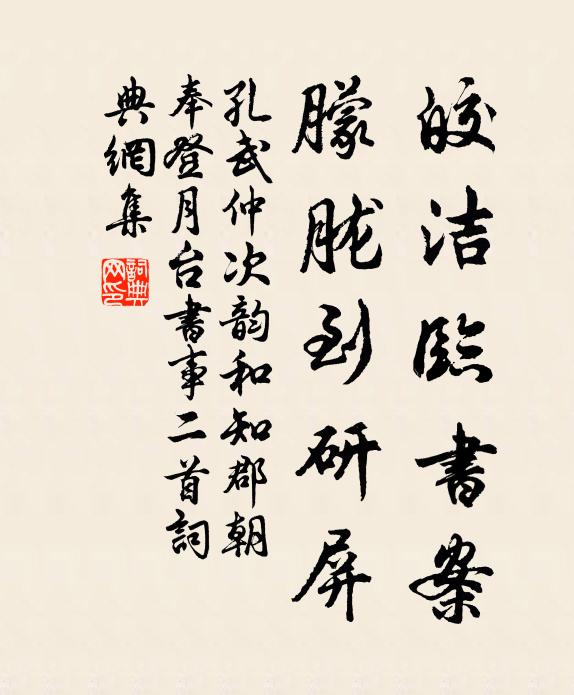 皎洁臨書案
朦胧到研屏
孔武仲次韵和知郡朝
奉登月台書事二首詞
典網集
詞典网印